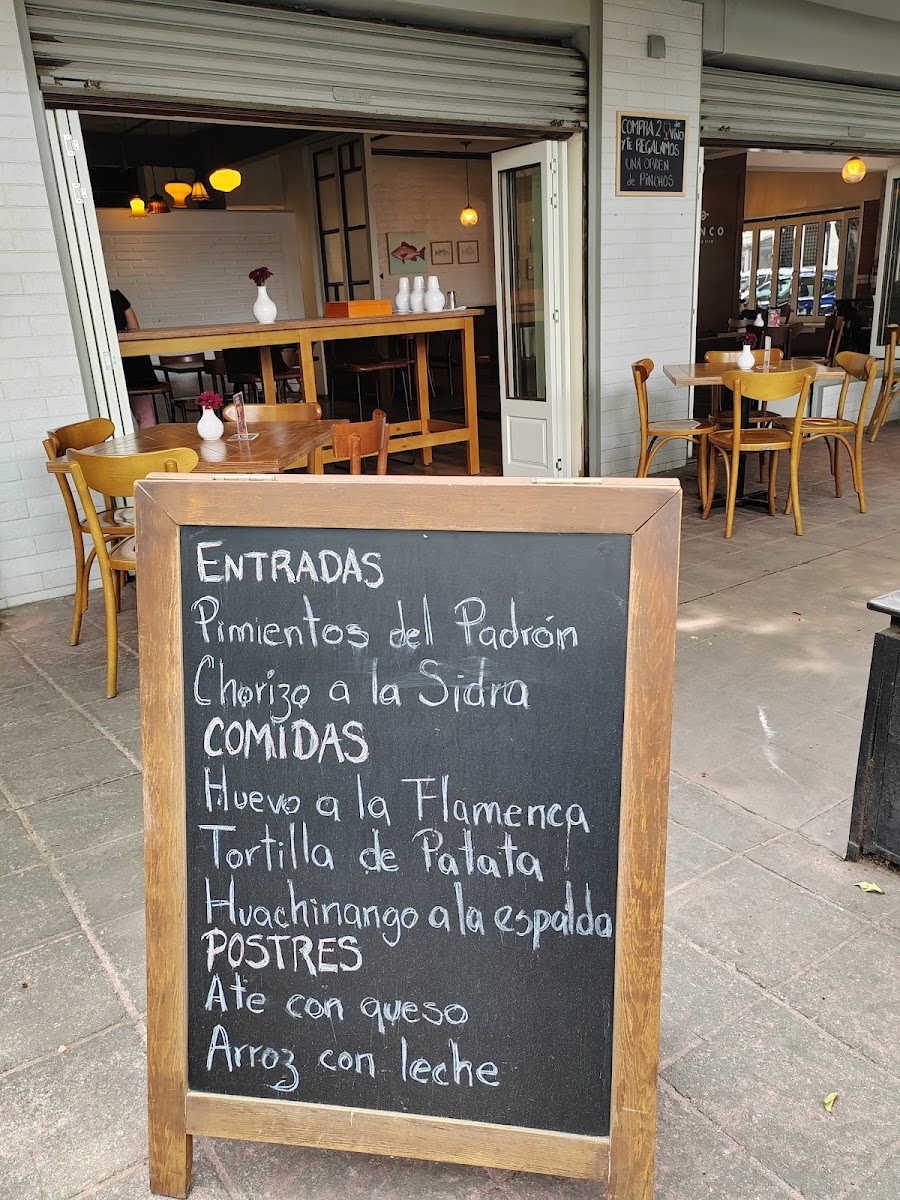 COMPRA 2 de VINO
Y TE REGALAMOS
UNA ORDEN
de PINCHOS
NCO
ENTRADAS
Pimientos del Padrón
Chorizo a la Sidra
COMIDAS
Huevo a la Flamenca
Tortilla de Patata
Huachinango a la espalda
POSTRES
Ate con queso
Arroz con leche